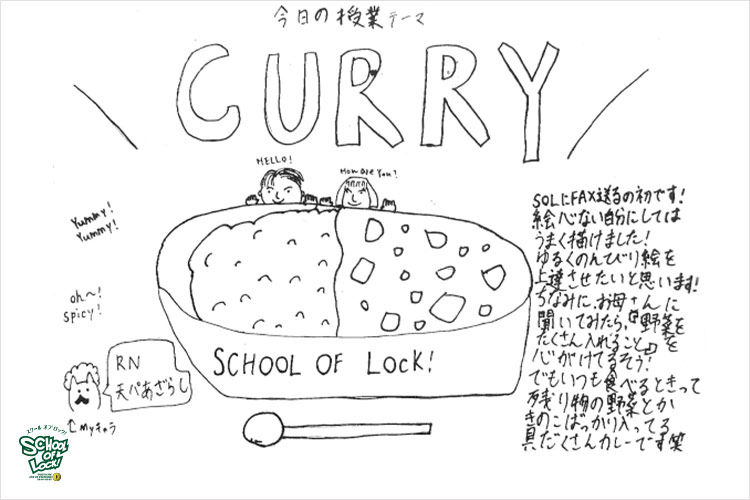 今日の授業テーマ
CURRY
HELLO!
How are You?
Yummy!
Yummy!
oh~!
spicy!
SCHOOL OF LocK!
RN
天ぺあざらし
myキャラ
SOLにFAX送るの初です!
絵心ない自分にしては
うまく描けました!
ゆるくのんびり絵を
上達させたいと思います!
ちなみにお母さんに
聞いてみたら,『野菜を
たくさん入れること』を
心がけてるそう!
でもいつも食べるときって
残り物の野菜とか
きのこばっかり入ってる
具だくさんカレーです笑
スクール オブ ロック!
SCHOOL
OF
LOCK!